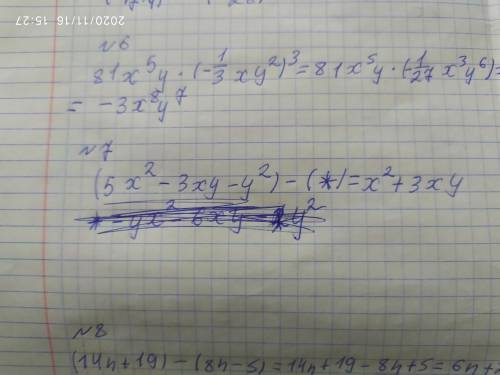 2020/11/16 15:27
№6
81x⁵y · (-1/3 xy²)³ = 81x⁵y · (1/27 x³y⁶) =
= -3x⁸y⁷
№7
(5x² - 3xy - y²) - (*) = x² + 3xy
№8
(14n + 19) - (8n - 5) = 14n + 19 - 8n + 5 = 6n +